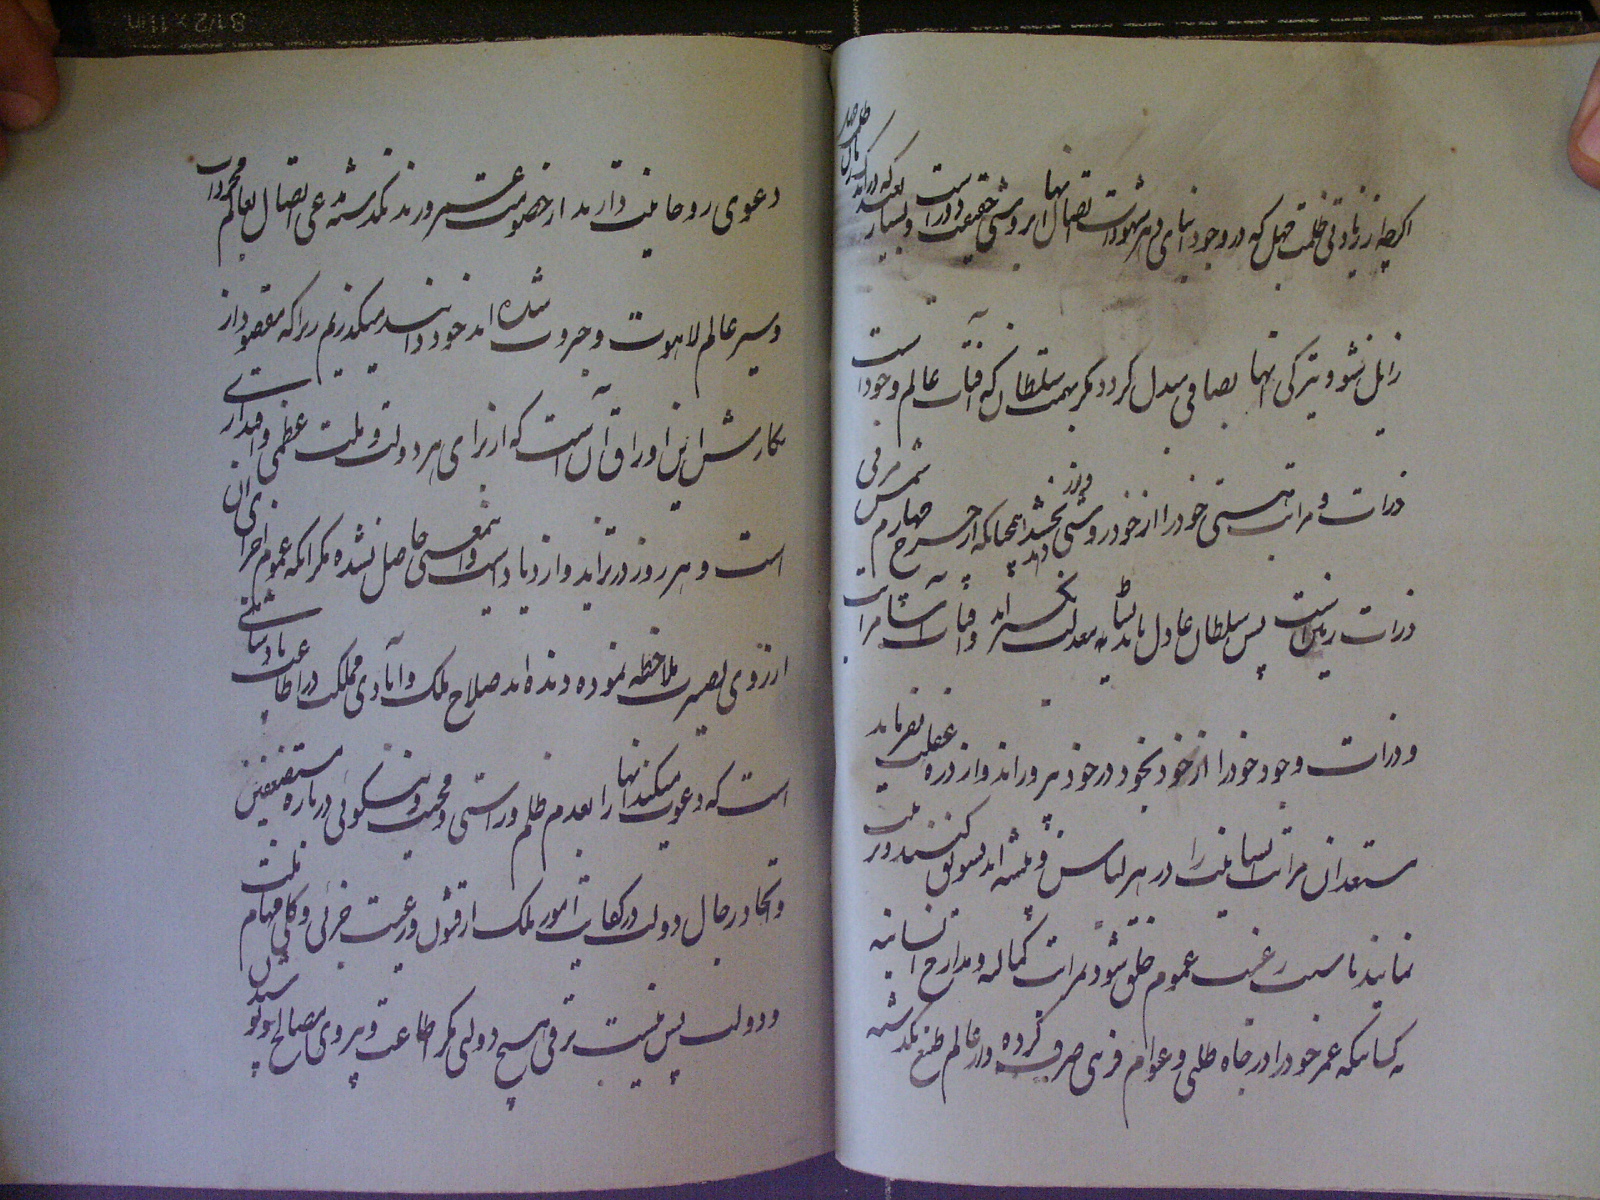 اگرچه از زیادتی ظلمت جهل که در وجود ابنای دهر شهود است اتصال آنها بروشنی حقیقت دور است و بسیار بعید که در اندک زمان
زایل نشود و تیرگی آنها بصافی مبدل گردد مگر بهمت سلطان که آفتاب عالم وجود است
ذرات و مراتب هستی خود را از خود روشنی بخشد همچنانکه از چرخ چهارم شمس مربی
ذرات زمین است پس سلطان عادل باید سایه معدلت گستراند و آفتاب آسا مراتب
و ذرات وجود خود را از خود بخود در خود پروراند و از ذره غفلت نفرماید
مستعدان مراتب انسانیت را در هر لباس و پیشه اند تشویق کنند و تربیت
نمایند تا سبب رغبت عموم خلق شود بمراتب کمالیه و مدارج انسانیه
نه کسانیکه عمر خود را در جاه طلبی و عوام فریبی صرف کرده و از عالم طبع نگذشته
دعوی روحانیت دارند از خصومت عنصر و رند نگذشته مدعی اتصال بعالم مجردات
و سیر عالم لاهوت و جبروت شده اند خود دانند میگذریم زیرا که مقصود از
نگارش این اوراق آن است که از برای هر دولت و ملت عظمی و اقتداری
است و هر روز در تزاید و ازدیاد است این معنی حاصل نشده مگر آنکه عموم اجزای آن
از روی بصیرت ملاحظه نموده دیده اند صلاح ملک و آبادی مملکت در اطاعت پادشاهی
است که دعوت میکند آنها را بعدم ظلم و راستی و محبت و نیکوئی درباره مستضعفین
و اتحاد رجال دولت در کفایت امور ملک از قشون و رعیت جزئی و کلی مهام ملت
و دولت پس نیست ترقی هیچ دولتی مگر اطاعت و پیروی مصالح